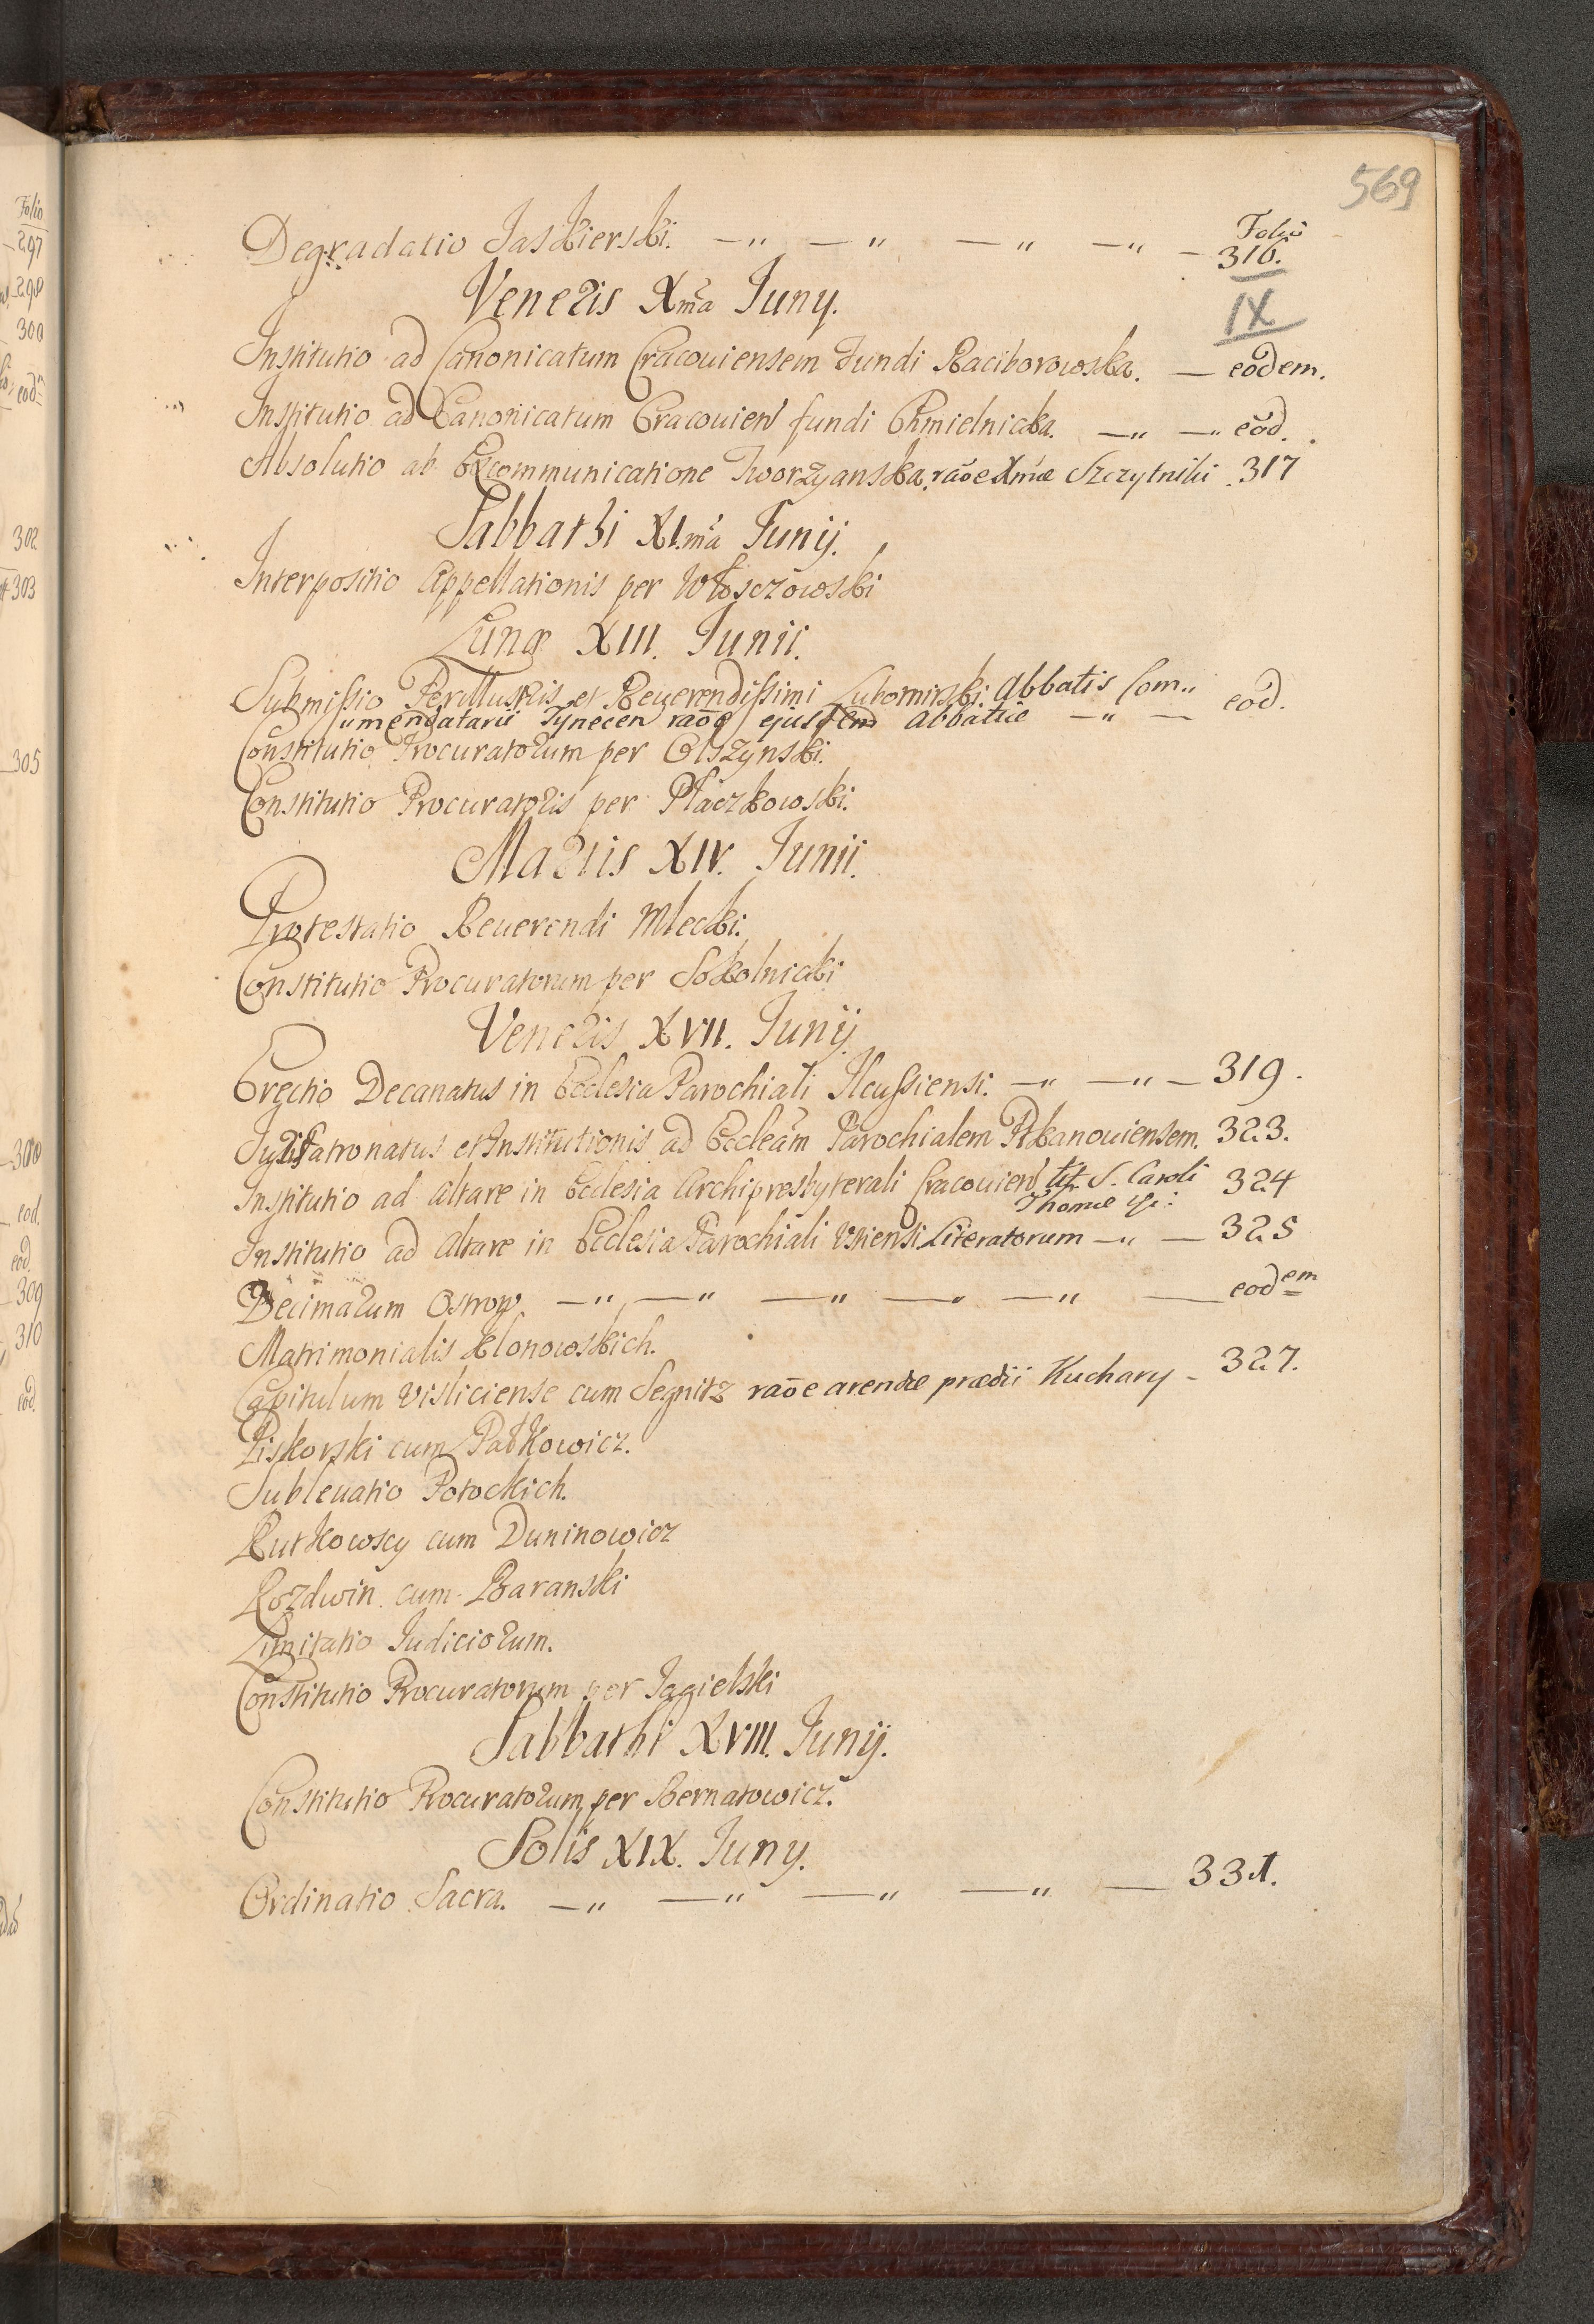 569
Folio
Degradatio Jaskierski. — „ — „ — „ — „ — 316.
Veneris Xma Juny.
IX
Institutio ad Canonicatum Cracouiensem Fundi Raciborowska. — eodem.
Institutio ad Canonicatum Cracouien fundi Chmielnicka. — „ — „ eod.
Absolutio ab Excommunicatione Tworzyanska, raoe Xmæ Szczytniki . 317
Sabbathi XI.ma Junij.
Interpositio Appellationis per Włosczowski
Lunæ XIII. Junii.
Submissio Perillustris et Reuerendissimi Lubomirski Abbatis Com„
umendatarii Tynecen raoe ejusdem Abbatiæ — „ — eod.
Constitutio Procuratorum per Olszynski.
Constitutio Procuratoris per Płaczkowski.
Martis XIV. Junii.
Protestatio Reuerendi Mlecki.
Constitutio Procuratorum per Sokolnicki
Veneris XVII. Junij
Erectio Decanatus in Ecclesia Parochiali Ilcussiensi. — „ — „ — 319.
Juris Patronatus et Institutionis ad Eccleam Parochialem Pkanouiensem. 323.
Institutio ad Altare in Ecclesia Archipresbyterali Cracouien tit. S. Caroli 324
Thomæ
Institutio ad Altare in Ecclesia Parochiali Usiensi Literatorum — „ — 325
Decimarum Ostrow. — „ — „ — „ — „ — „ — eodem
Matrimonialis Klonowskich.
Capitulum Visliciense cum Segnitz raoe arendæ prædii Kuchary - 327.
Piskorski cum Pałkowicz.
Subleuatio Potockich.
Rutkowscy cum Duninowicz
Rozdwin. cum Baranski
Limitatio Judiciorum.
Constitutio Procuratorum per Jagielski
Sabbathi XVIII. Junij.
Constitutio Procuratorum per Bernatowicz.
Solis XIX. Juny.
Ordinatio Sacra. — „ — „ — „ — „ — 331.